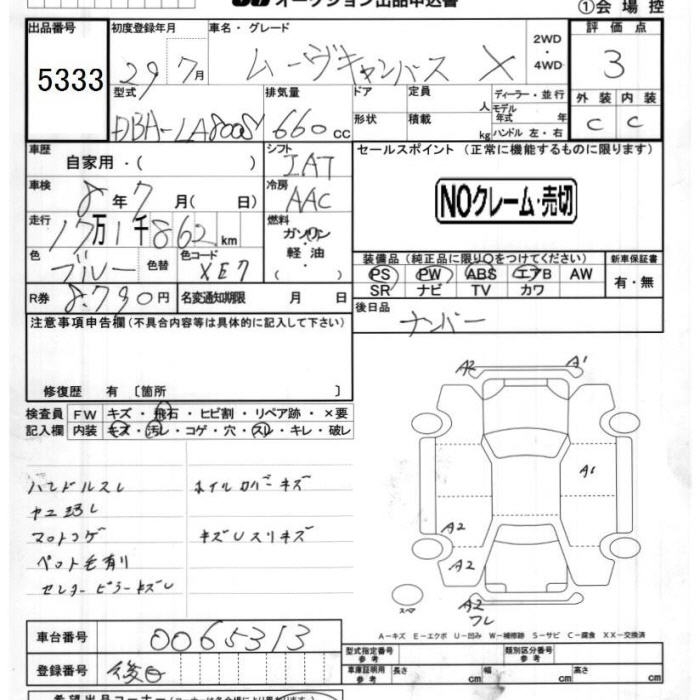 オークション出品申込書
①会場控
出品番号 初度登録年月 車名・グレード 評価点
5333 29 7月 ムーヴキャンバス X 2WD ・ 4WD 3
型式 排気量 ドア 定員 人 ディーラー・並行 外装 内装
DBA-LA800S 660cc 形状 積載 kg モデル年式 年 C C
ハンドル 左・右
車歴 自家用・( ) シフト IAT セールスポイント (正常に機能するものに限ります)
車検 8年7月( 日) 冷房 AAC NOクレーム・売切
走行 17万1千862km 燃料 ガソリン・軽油・
色 ブルー 色替 色コード XE7 装備品(純正品に限り○をつけてください) 新車保証書
PS PW ABS エアB AW 有・無
SR ナビ TV カワ
R券 8.790円 名変通知期限 月 日 後日品
ナンバー
注意事項申告欄(不具合内容等は具体的に記入して下さい)
修復歴 有 〔箇所 〕
検査員 FW キズ・飛石・ヒビ割・リペア跡・×要
記入欄 内装 キズ・汚レ・コゲ・穴・スレ・キレ・破レ
A2 A1
A1
ハンドルスレ ホイルカバーキズ
A2
マットコゲ キズUスリキズ
ペット毛有り A2
セレター ピラーキズU
スペア A2
フレ
A-キズ E-エクボ U-凹み W-補修跡 S-サビ C-腐食 XX-交換済
車台番号 0065313
型式指定番号 参考 類別区分番号 参考
登録番号 後日 車庫証明用 参考 長さ cm 幅 cm 高さ cm
希望出品コーナー